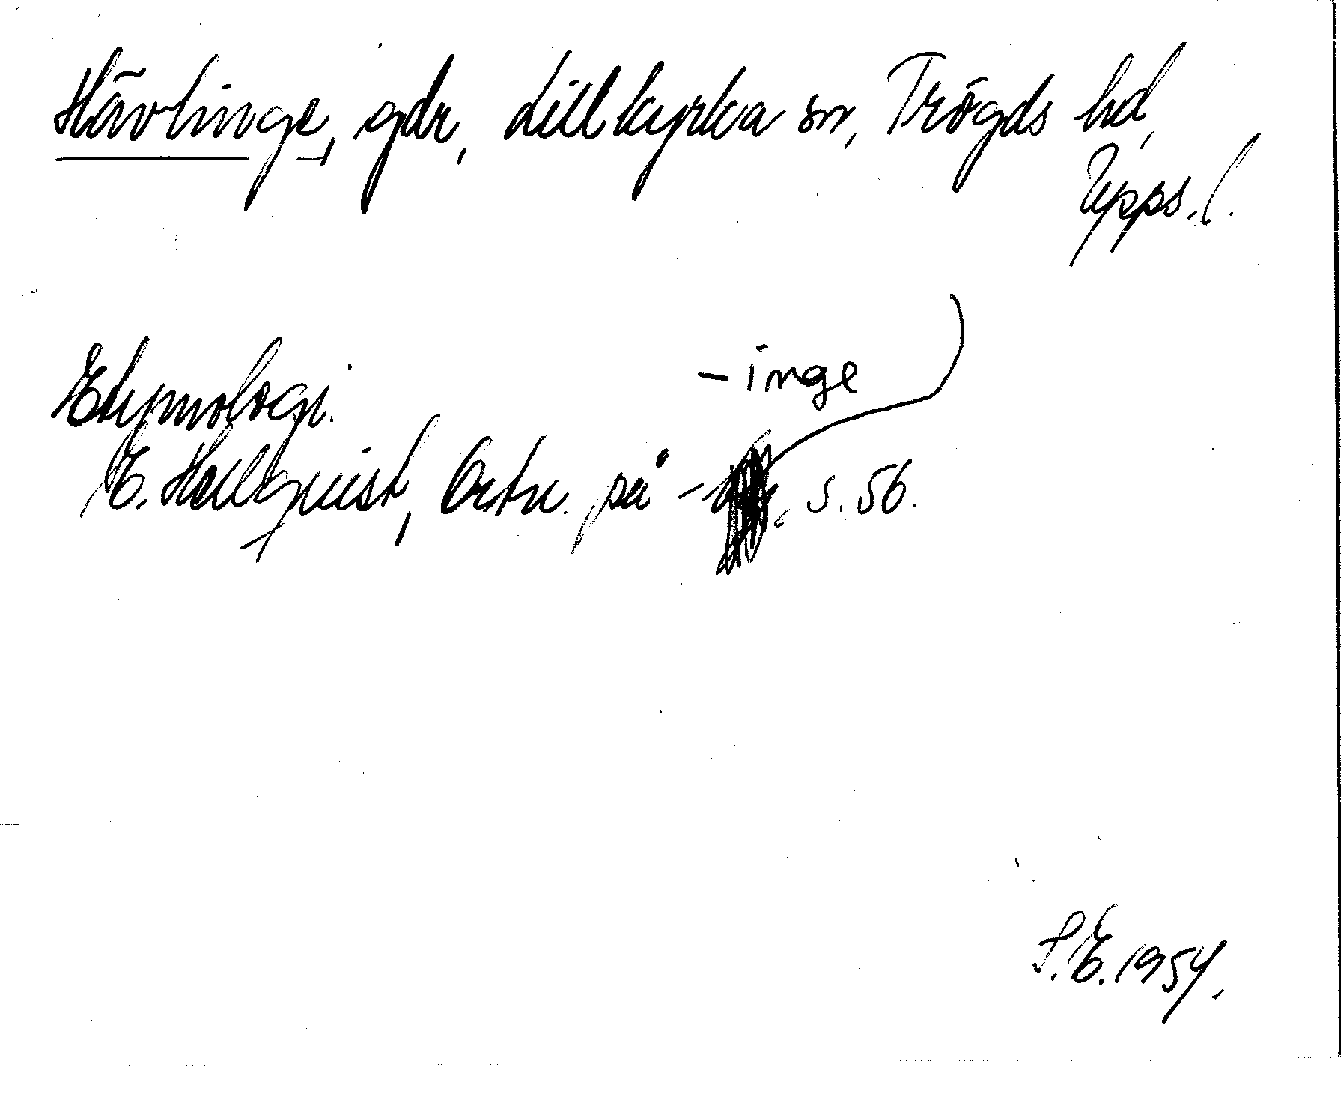 Hävlinge, gdr, Lillkyrka sn, Trögds hd,
Upps. l.
Etymologi.
-inge
E. Hellquist, Ortn. på - , s. 56.
S.E. 1954.